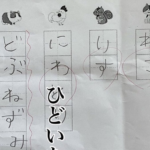 どぶねずみ
にわ
ひどい
りす